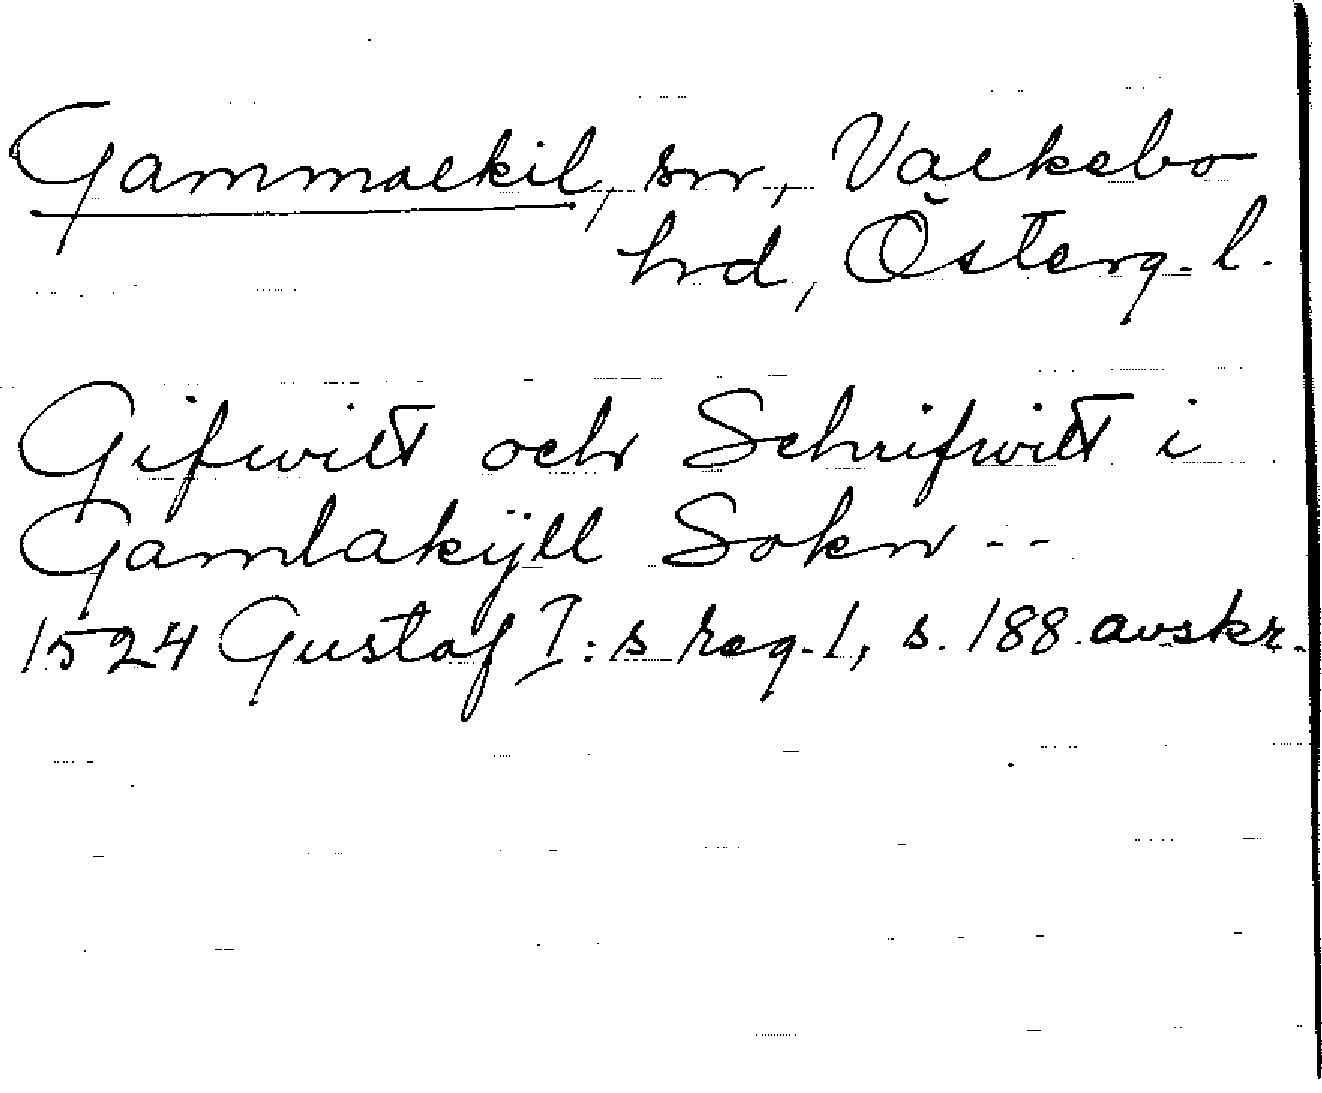 Gammalkil, sn, Valkebo
hd, Österg. l.
Gifwilt och Schrifwilt i
Gamlakÿll Sokn --
1524 Gustaf I:s reg. 1, s. 188 avskr.